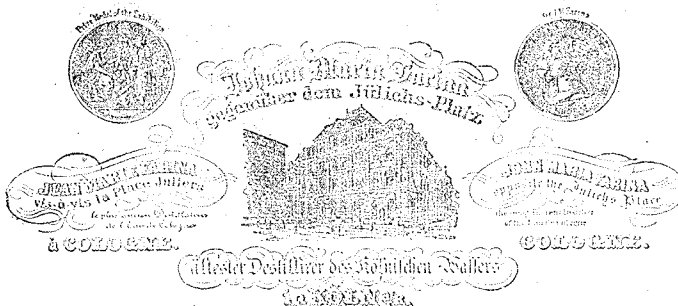 Prize Medal of the Exhibition
Johann Maria Farina
gegenüber dem Jülichs-Platz
JEAN MARIE FARINA
vis-à-vis la Place Juliers
le plus ancien Distillateur
de l'Eau de Cologne
à COLOGNE.
JOHN MARIA FARINA
opposite the Julichs Place
the most
COLOGNE.
ältester Destillirer des Kölnischen-Wassers
in KÖLN